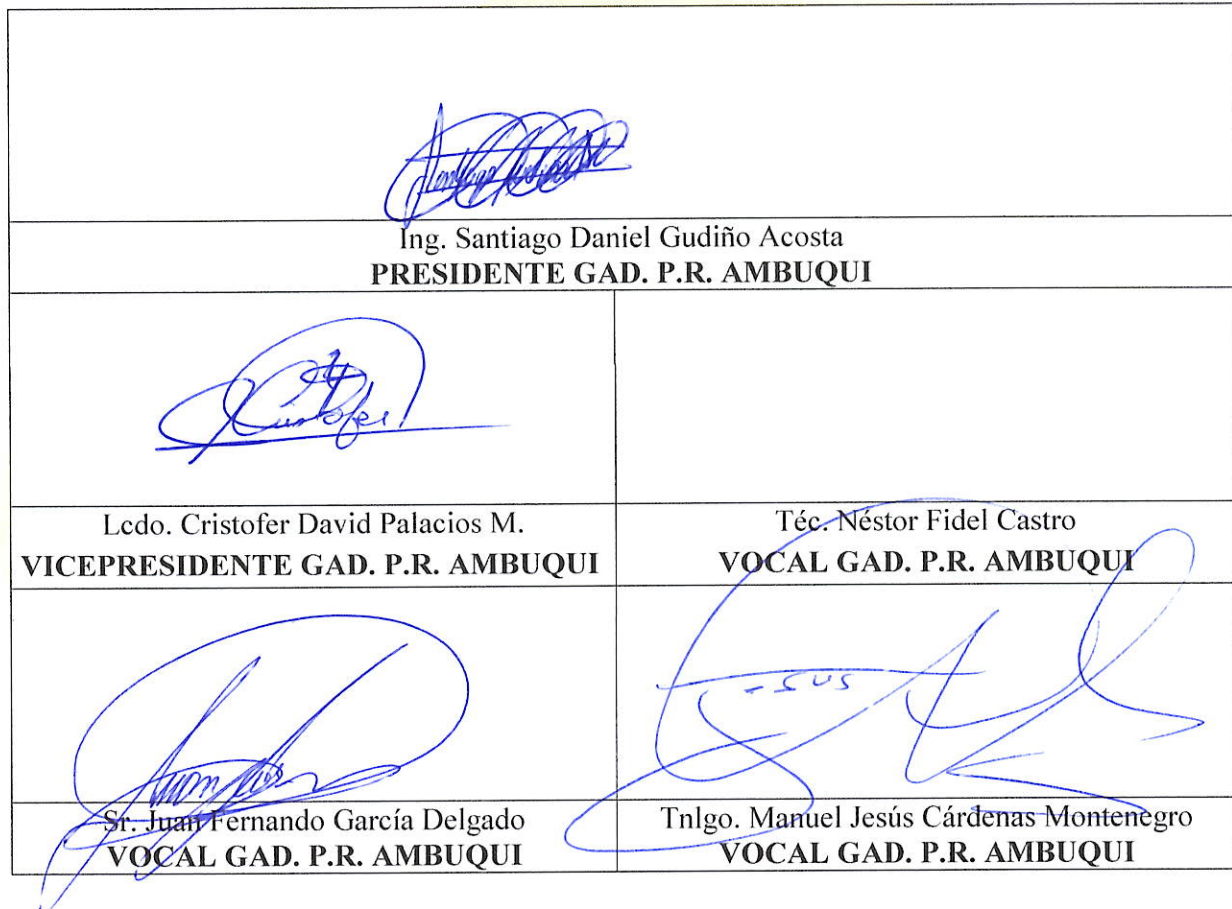 Ing. Santiago Daniel Gudiño Acosta
PRESIDENTE GAD. P.R. AMBUQUI
Cristofer
Lcdo. Cristofer David Palacios M.
VICEPRESIDENTE GAD. P.R. AMBUQUI
Téc. Néstor Fidel Castro
VOCAL GAD. P.R. AMBUQUI
Sr. Juan Fernando García Delgado
VOCAL GAD. P.R. AMBUQUI
Tnlgo. Manuel Jesús Cárdenas Montenegro
VOCAL GAD. P.R. AMBUQUI